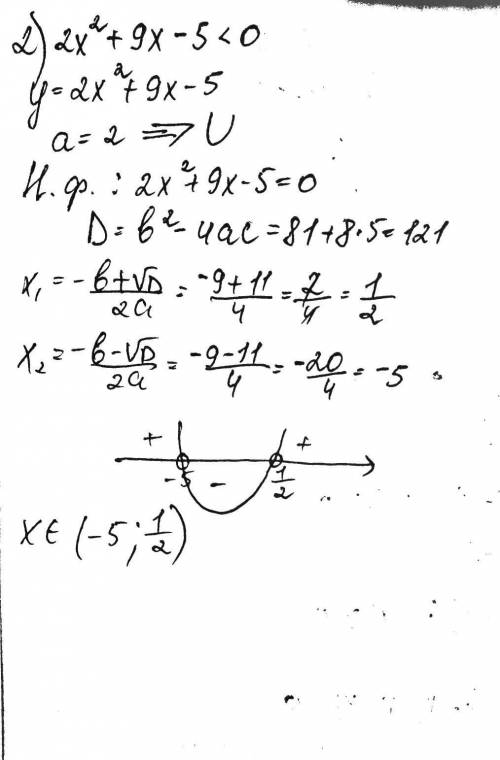 2) 2x² + 9x - 5 < 0
y = 2x² + 9x - 5
a = 2 => U
Н.ф.: 2x² + 9x - 5 = 0
D = b² - 4ac = 81 + 8·5 = 121
x₁ = -b+√D/2a = -9+11/4 = 2/4 = 1/2
x₂ = -b-√D/2a = -9-11/4 = -20/4 = -5
+ - +
-5 1/2
x ∈ (-5; 1/2)